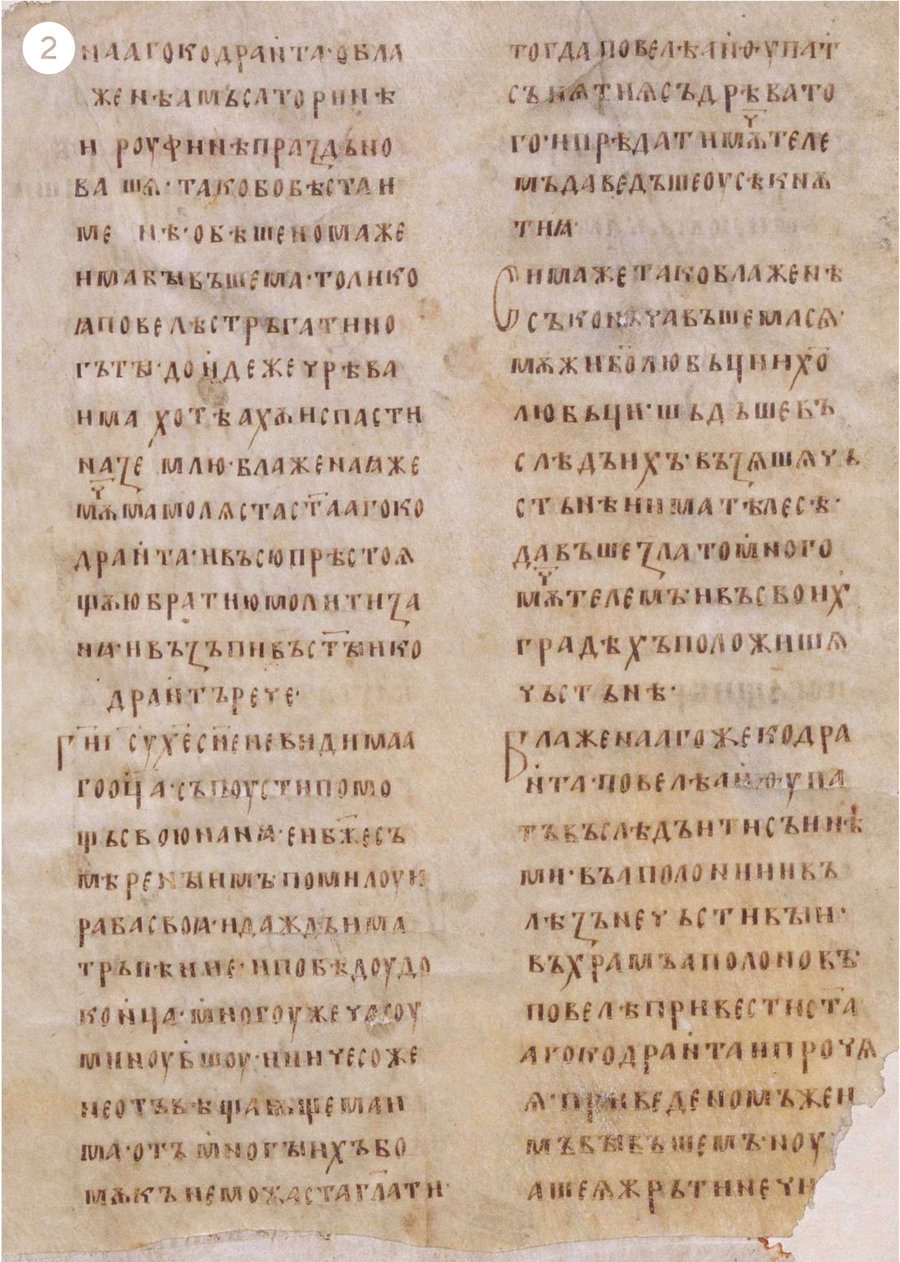 2
нааго кодран҄та· обла
женѣа мъ саторинѣ
и роуфинѣ праздьно
вашѧ· тако бо бѣста и
ме нѣ· обѣшенома же
има бꙑвъшема· толико
ꙗ повелѣ стръгати но
гътꙑ· дон҄деже чрѣва
има хотѣахѫ испасти
на землю· блаженаꙗ же
мѫч҃ма молѧста ст҃ааго ко
дран҄та· и вьсю прѣстоѧ
щѫю братию молити за
нꙗ· и възъпивъ ст҃ꙑи ко
дран҄тъ рече·
Г҃и іс ух҃е сн҃е невидимаа
го оц҃а· съпоусти помо
щь своѭ на нꙗ· еи бж҃е съ
мѣренꙑимъ помилоуи
раба своꙗ· и даждь има
трьпѣние· и побѣдоу до
кон҄ца· м҄ногоу же часоу
миноувъшоу· и ничесоже
не отъвѣщавъшема и
ма· отъ м҄ногꙑихъ бо
мѫкъ не можаста гл҃ати·
тогда повелѣ ан҄ѳ·упат
съ нѧти ѧ съ дрѣва то
го· и прѣдати мѫч҃теле
мъ да ведъше оусѣкнѫ
ти ꙗ·
Сима же тако блаженѣ
съконьчавъшема сѧ·
мѫжи бо҃любьци и хо҃
любьци· шьдъше въ
слѣдъ ихъ· възѧшѧ чь
стьнѣи има тѣлесѣ·
давъше злато м҄ного
мѫч҃телемъ и въ своих
градѣхъ положишѧ
чьстьнѣ·
Блаженааго же кодра
н҄та· повелѣ ан҄ѳупа
тъ въслѣдъ ити съ ни
ми· въ аполонии· и въ
лѣзъ нечьстивꙑи·
въ храмъ аполоновъ
повелѣ привести ст҃а
аго кодран҄та и прочѧ
ѧ· приведеномъ же и
мъ бꙑвъшемъ· ноу